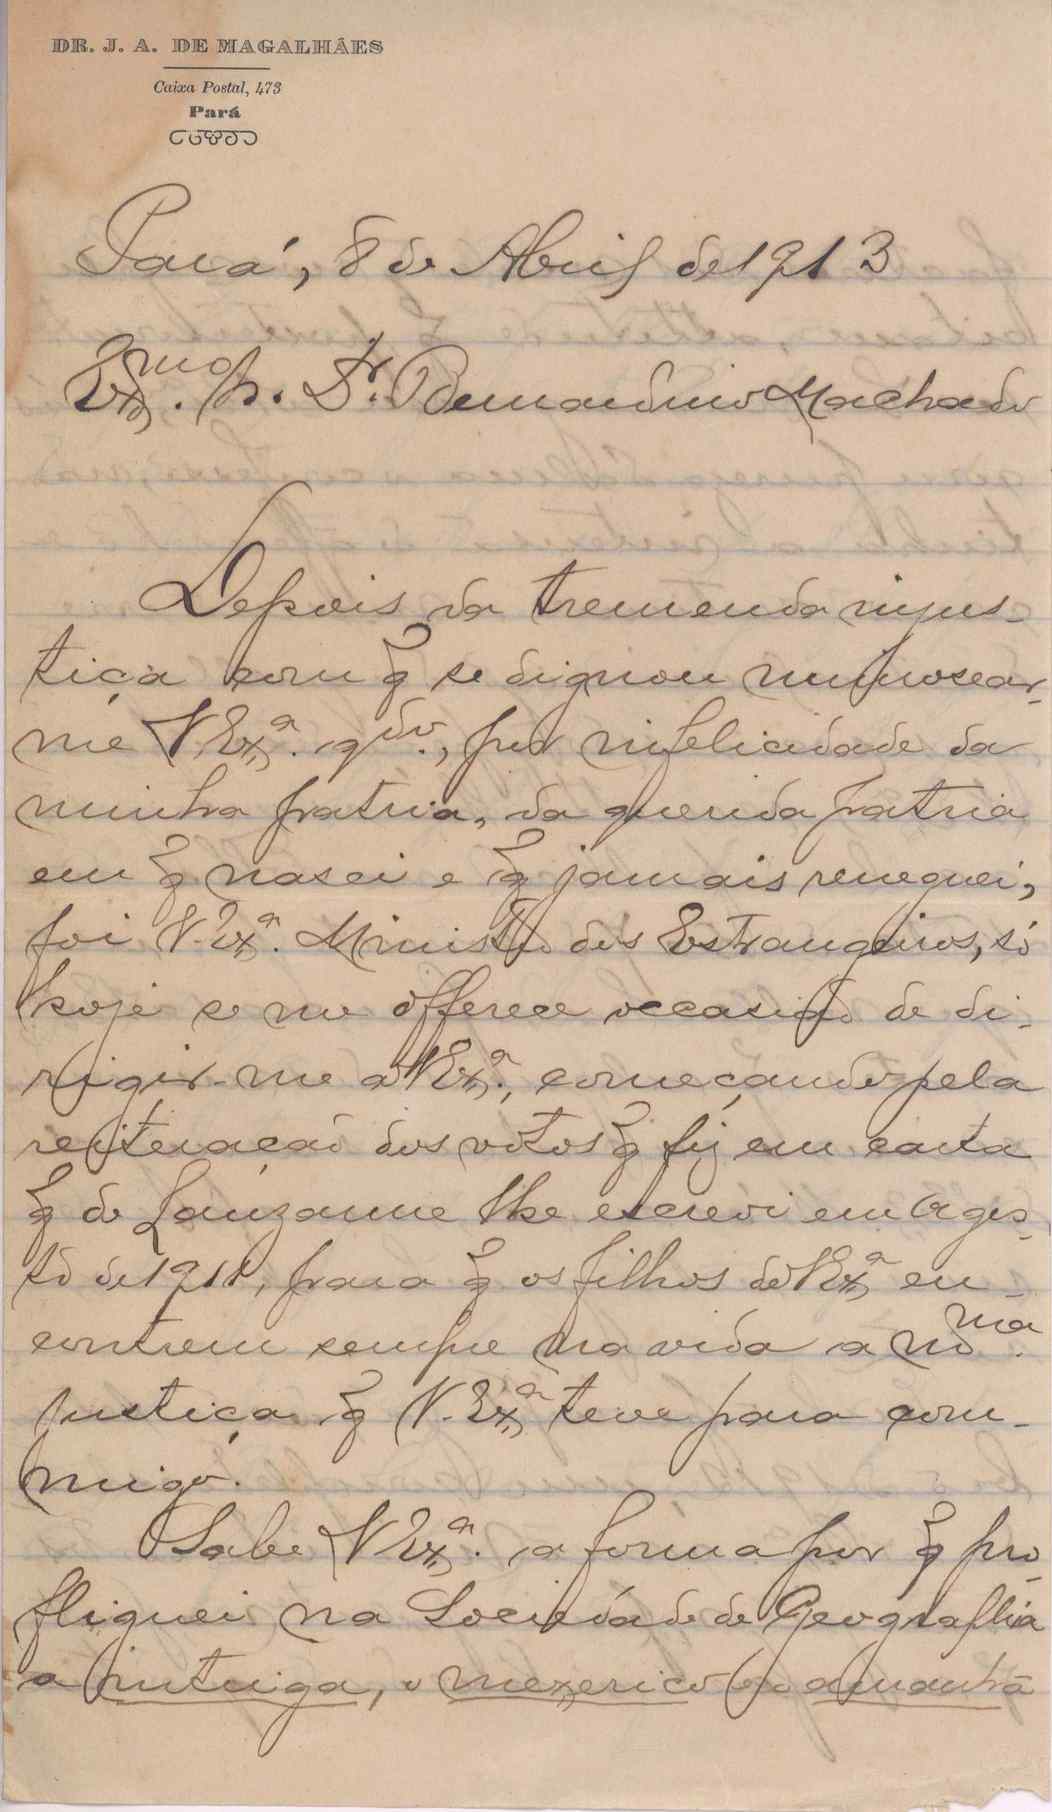 DR. J. A. DE MAGALHÃES
Caixa Postal, 473
Pará
Pará, 8 de Abril de 1913
Exmo. Sr. Dr. Bernardino Machado
Depois da tremenda injus-
tiça com q se dignou mimosear-
me V. Exª. qdo., por infelicidade da
minha patria, da querida patria
em q nasci e q jamais reneguei,
foi V. Exª. Ministro dos Estrangeiros, só
hoje se me offerece occasião de di-
rigir-me a V. Exª., começando pela
reiteração dos votos q fiz em carta
q de Lauzanne lhe escrevi em Agos-
to de 1911, para q os filhos de V. Exª en-
contrem sempre na vida a mma.
justiça q V. Exª teve para com-
migo.
Sabe V. Exª. a forma por q pro-
fliguei na Sociedade de Geographia
a intriga, o mexerico e o amanhã